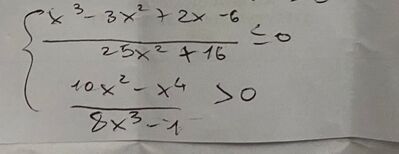 x³ - 3x² + 2x - 6
25x² + 16
≤ 0
10x² - x⁴
8x³ - 1
> 0